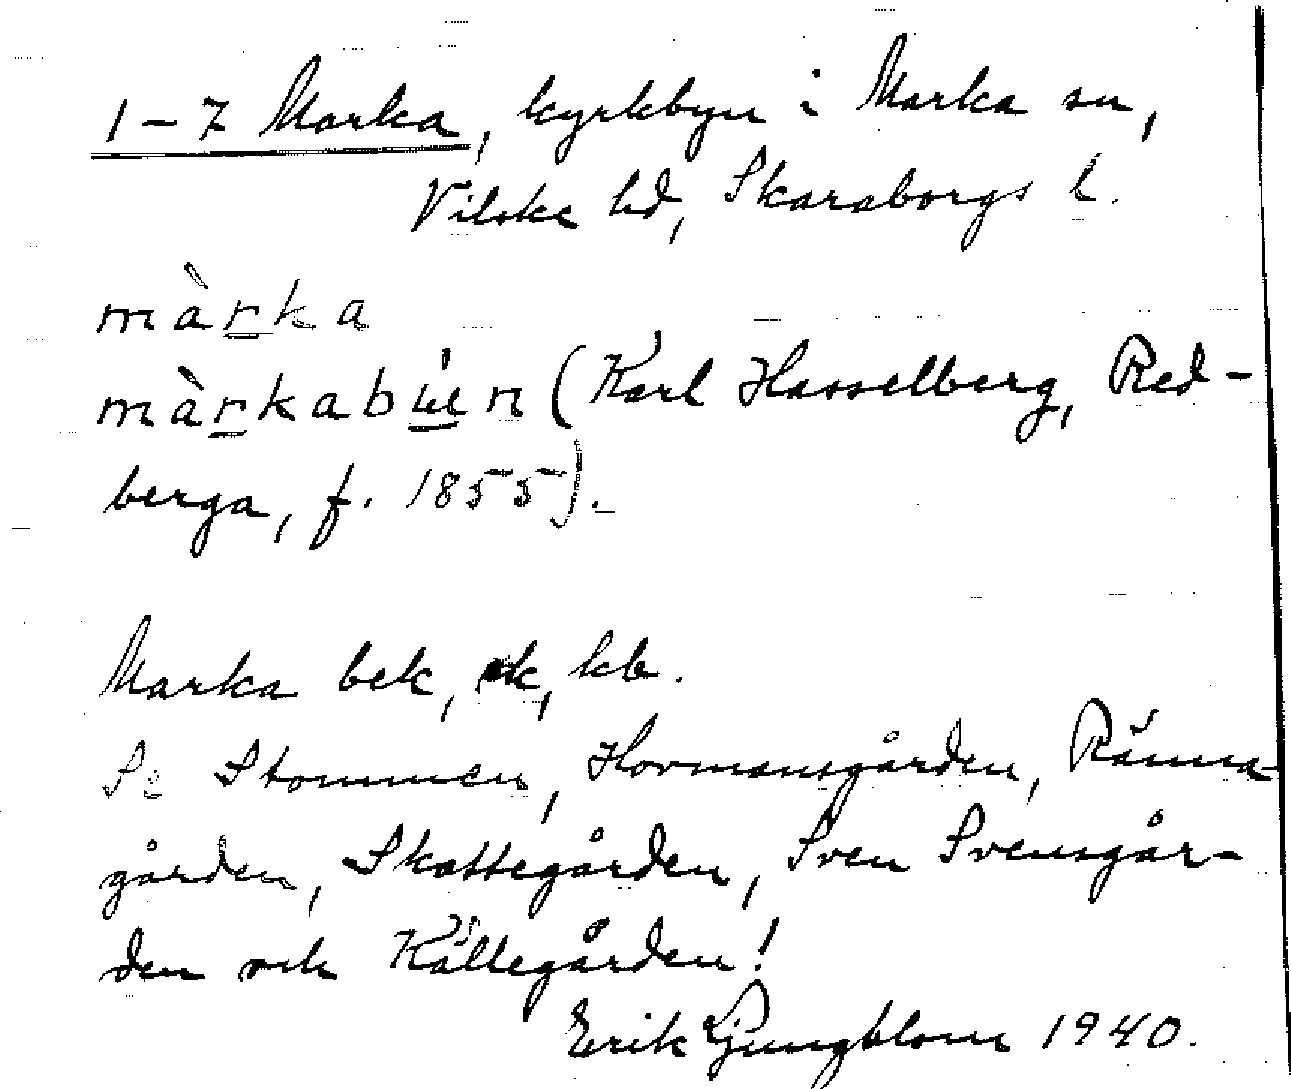 1-7 Marka, kyrkbyn i Marka sn,
Vilske hd, Skaraborgs l.
màrka
màrkabɯ́en (Karl Hasselberg, Red-
berga, f. 1855).
Marka bek, ek, kb.
Se Stommen, Hovmansgården, Ränna-
gården, Skattegården, Sven Svensgår-
den och Källegården!
Erik Ljungblom 1940.